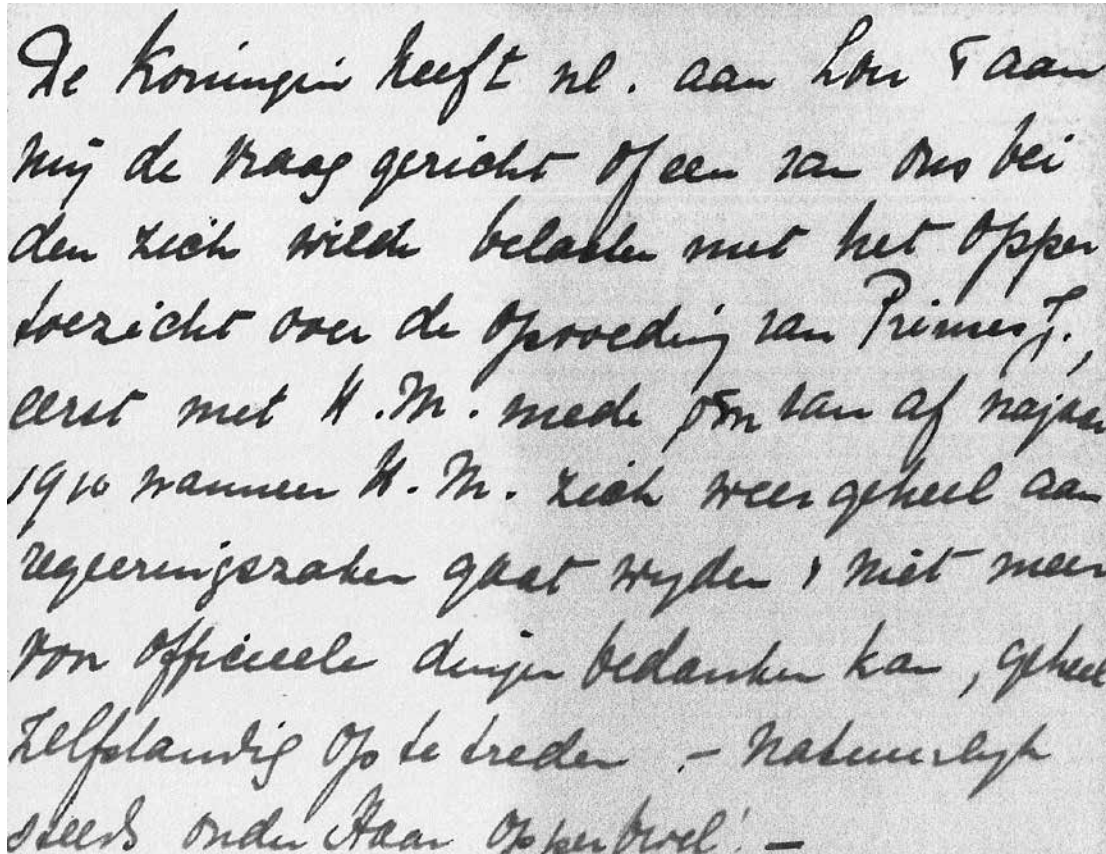 De Koningin heeft nl. aan Lou & aan
mij de vraag gericht of een van ons bei
den zich wilde belasten met het opper
toezicht over de opvoeding van Prinses J.,
eerst met H.M. mede om van af najaar
1910 wanneer H.M. zich weer geheel aan
regeeringszaken gaat wyden & niet meer
voor officieele dingen bedanken kan, geheel
zelfstandig op te treden. – Natuurlyk
steeds onder Haar opperbevel! –